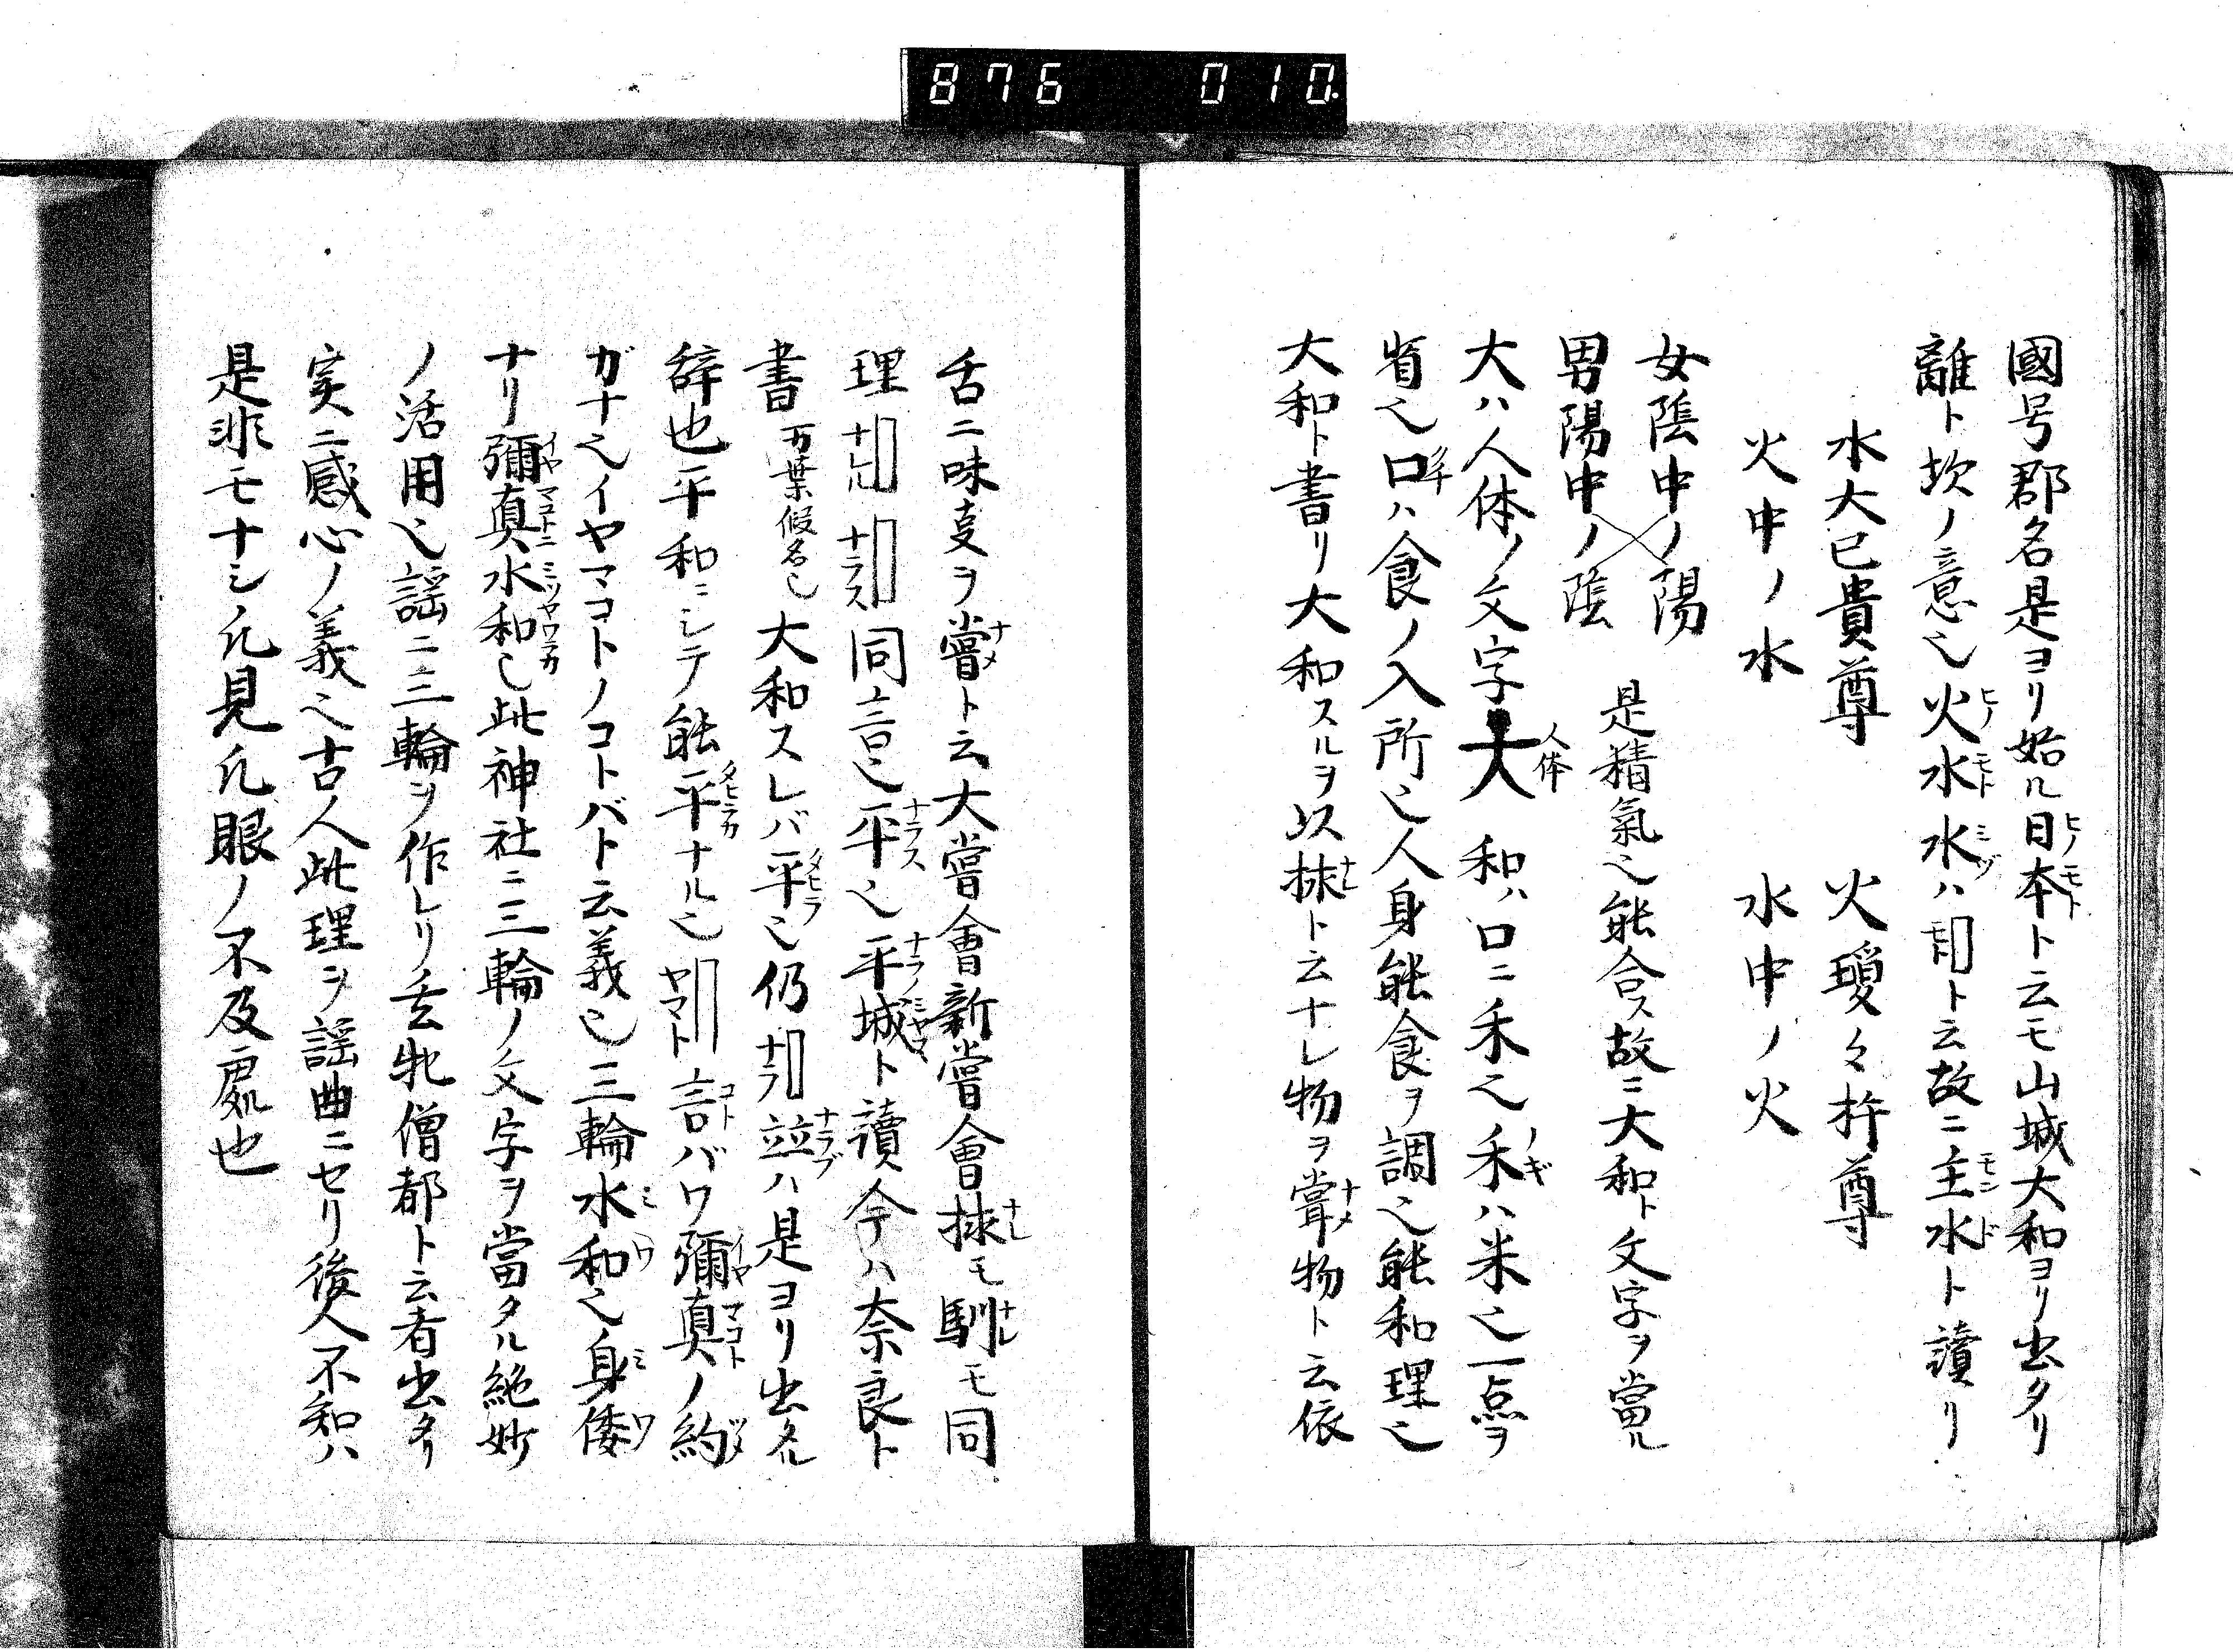 876 010
國号郡名是ヨリ始ル日本ト云モ山城大和ヨリ出タリ
離ト坎ノ意也火水水ハト云故ニ主水ト讀リ
水大已貴尊 火瓊々杵尊
火中ノ水 水中ノ火
女陰中ノ陽
男陽中ノ陰
是精氣也能合ス故ニ大和ト文字ヲ當ル
大ハ人体ノ文字大 人体 和ハ口ニ禾也禾ハ米也一点ヲ
省也口ハ食ノ入所也人身能食ヲ調也能和理也
大和ト書リ大和スルヲ以ト云ナレ物ヲ嘗物ト云依
舌ニ味支ヲ嘗ト云大嘗會新嘗會モ馴モ同
理 同言也平也平城ト讀今ハ奈良ト
書 万葉假名也 大和スレバ平也仍 並ハ是ヨリ出タル
辞也平和ニシテ能平ナル也 ヤマト 言バワ彌真ノ約
ガナ也イヤマコトノコトバト云義也三輪水和也身倭
ナリ彌真水和也此神社ニ三輪ノ文字ヲ當タル絶妙
ノ活用也謡ニ三輪ヲ作レリ玄牝僧都ト云者出タリ
実ニ感心ノ義也古人此理ヲ謡曲ニセリ後人不知ハ
是非モナシ凡見凡眼ノ不及處也